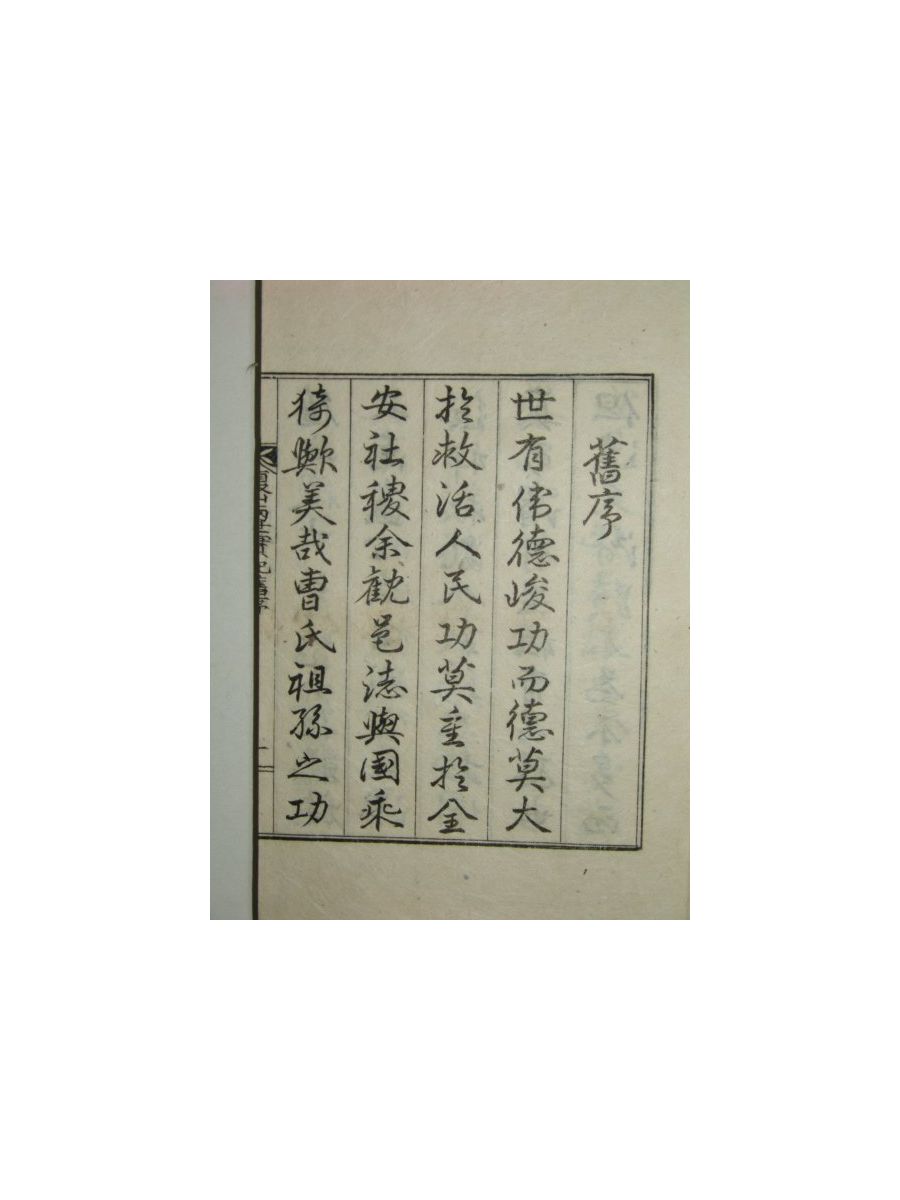 舊序
世有偉德峻功而德莫大
扵救活人民功莫重扵全
安社稷余觀邑誌與國乘
猗歟美哉曹氏祖孫之功
實記舊序